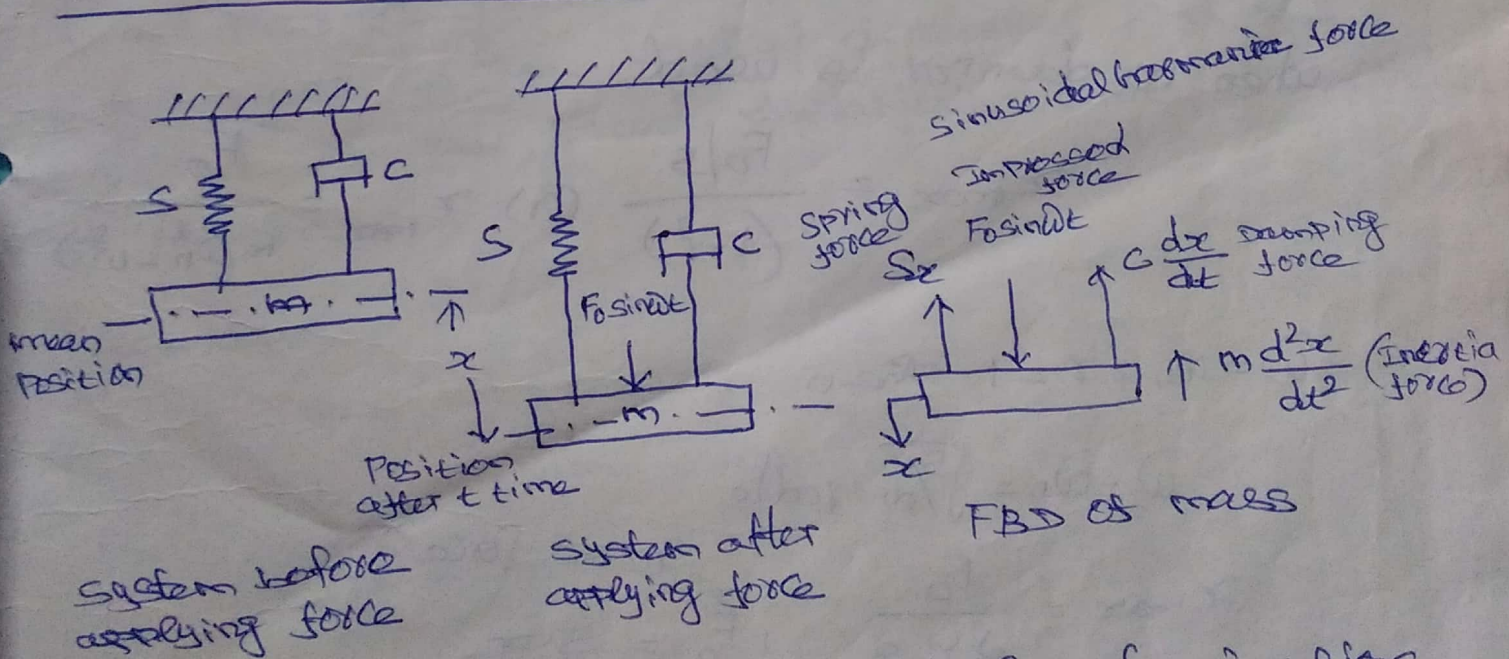 S
C
m
mean
Position
x
System before
applying force
S
C
F₀sinωt
m
Position
after t time
System after
applying force
Sinusoidal harmonic force
Impressed
force
F₀sinωt
Spring
force
Sx
C dx/dt Damping
force
m d²x/dt² (Inertia
force)
x
FBD of mass